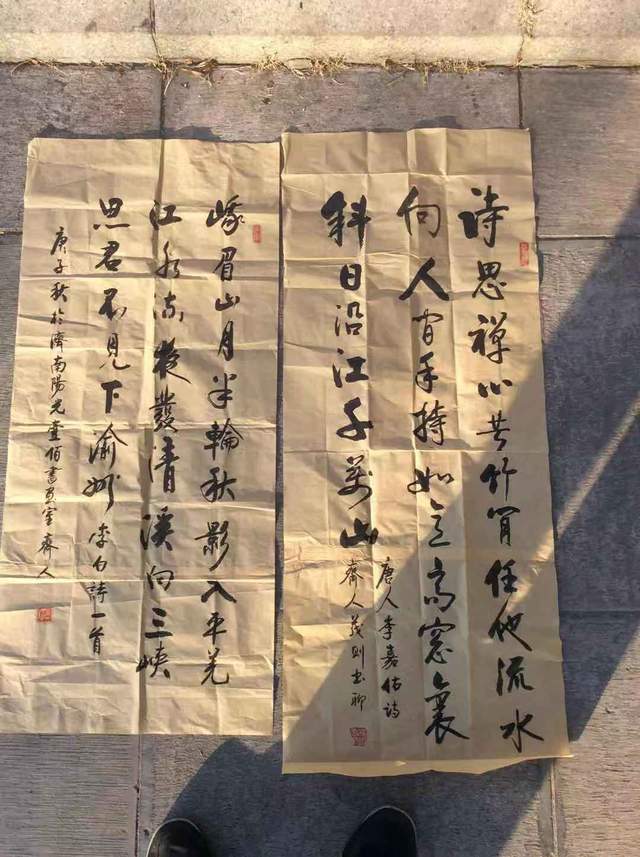 诗思禅心共竹闲任他流水
向人间手持如意高窓裏
斜日沿江千萬山
唐人李嘉祐诗
齊人茂则书聊
峨眉山月半輪秋影入平羌
江水流夜發清溪向三峡
思君不見下渝州 李白詩一首
庚子秋於濟南陽光壹佰書画室 齊人